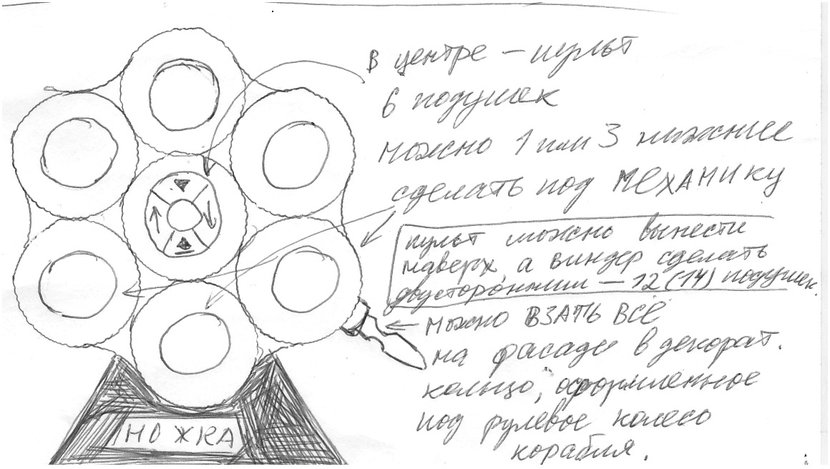 в центре – пульт
6 подушек
можно 1 или 3 нижние
сделать под МЕХАНИКУ
пульт можно вынести
наверх, а виндер сделать
двусторонним – 12 (14) подушек.
можно ВЗЯТЬ ВСЁ
на фасаде в декорат.
кольцо, оформленное
под рулевое колесо
корабля.
НОЖКА